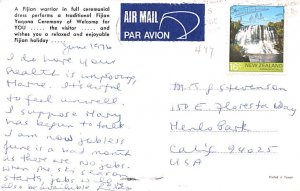 A Fijian warrior in full ceremonial
dress performs a traditional Fijian
Yaqona Ceremony of Welcome for
YOU ... the visitor ... and
wishes you a relaxed and enjoyable
Fijian holiday
June 1976
I do hope your
health is improving,
Marre. It's awful
to feel unwell.
I suppose Mary
has begun to talk
I am now jobless
June is a bad month
as there are no jobs.
when the ski season
starts, jobs will
also be available
AIR MAIL
PAR AVION
NEW ZEALAND
Mrs J Stevenson
150 E. Floresta Way
Menlo Park
Calif 94025
USA